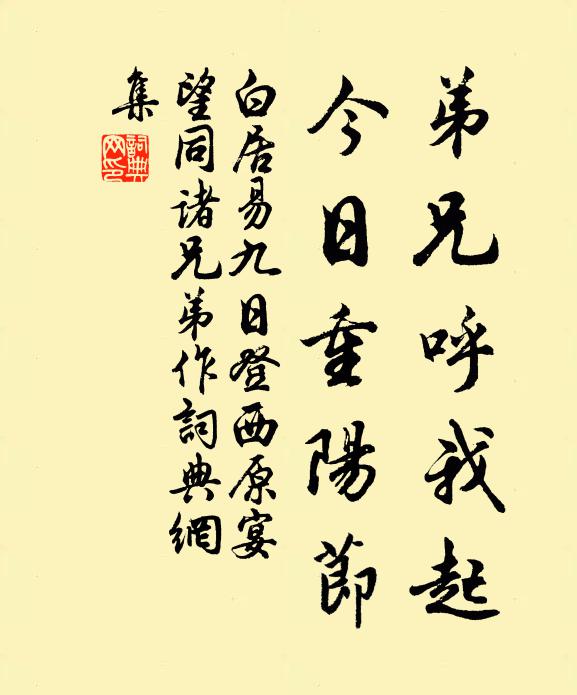 弟兄呼我起
今日重陽節
白居易九日登西原宴
望同諸兄弟作詞典網
集
詞典
网印